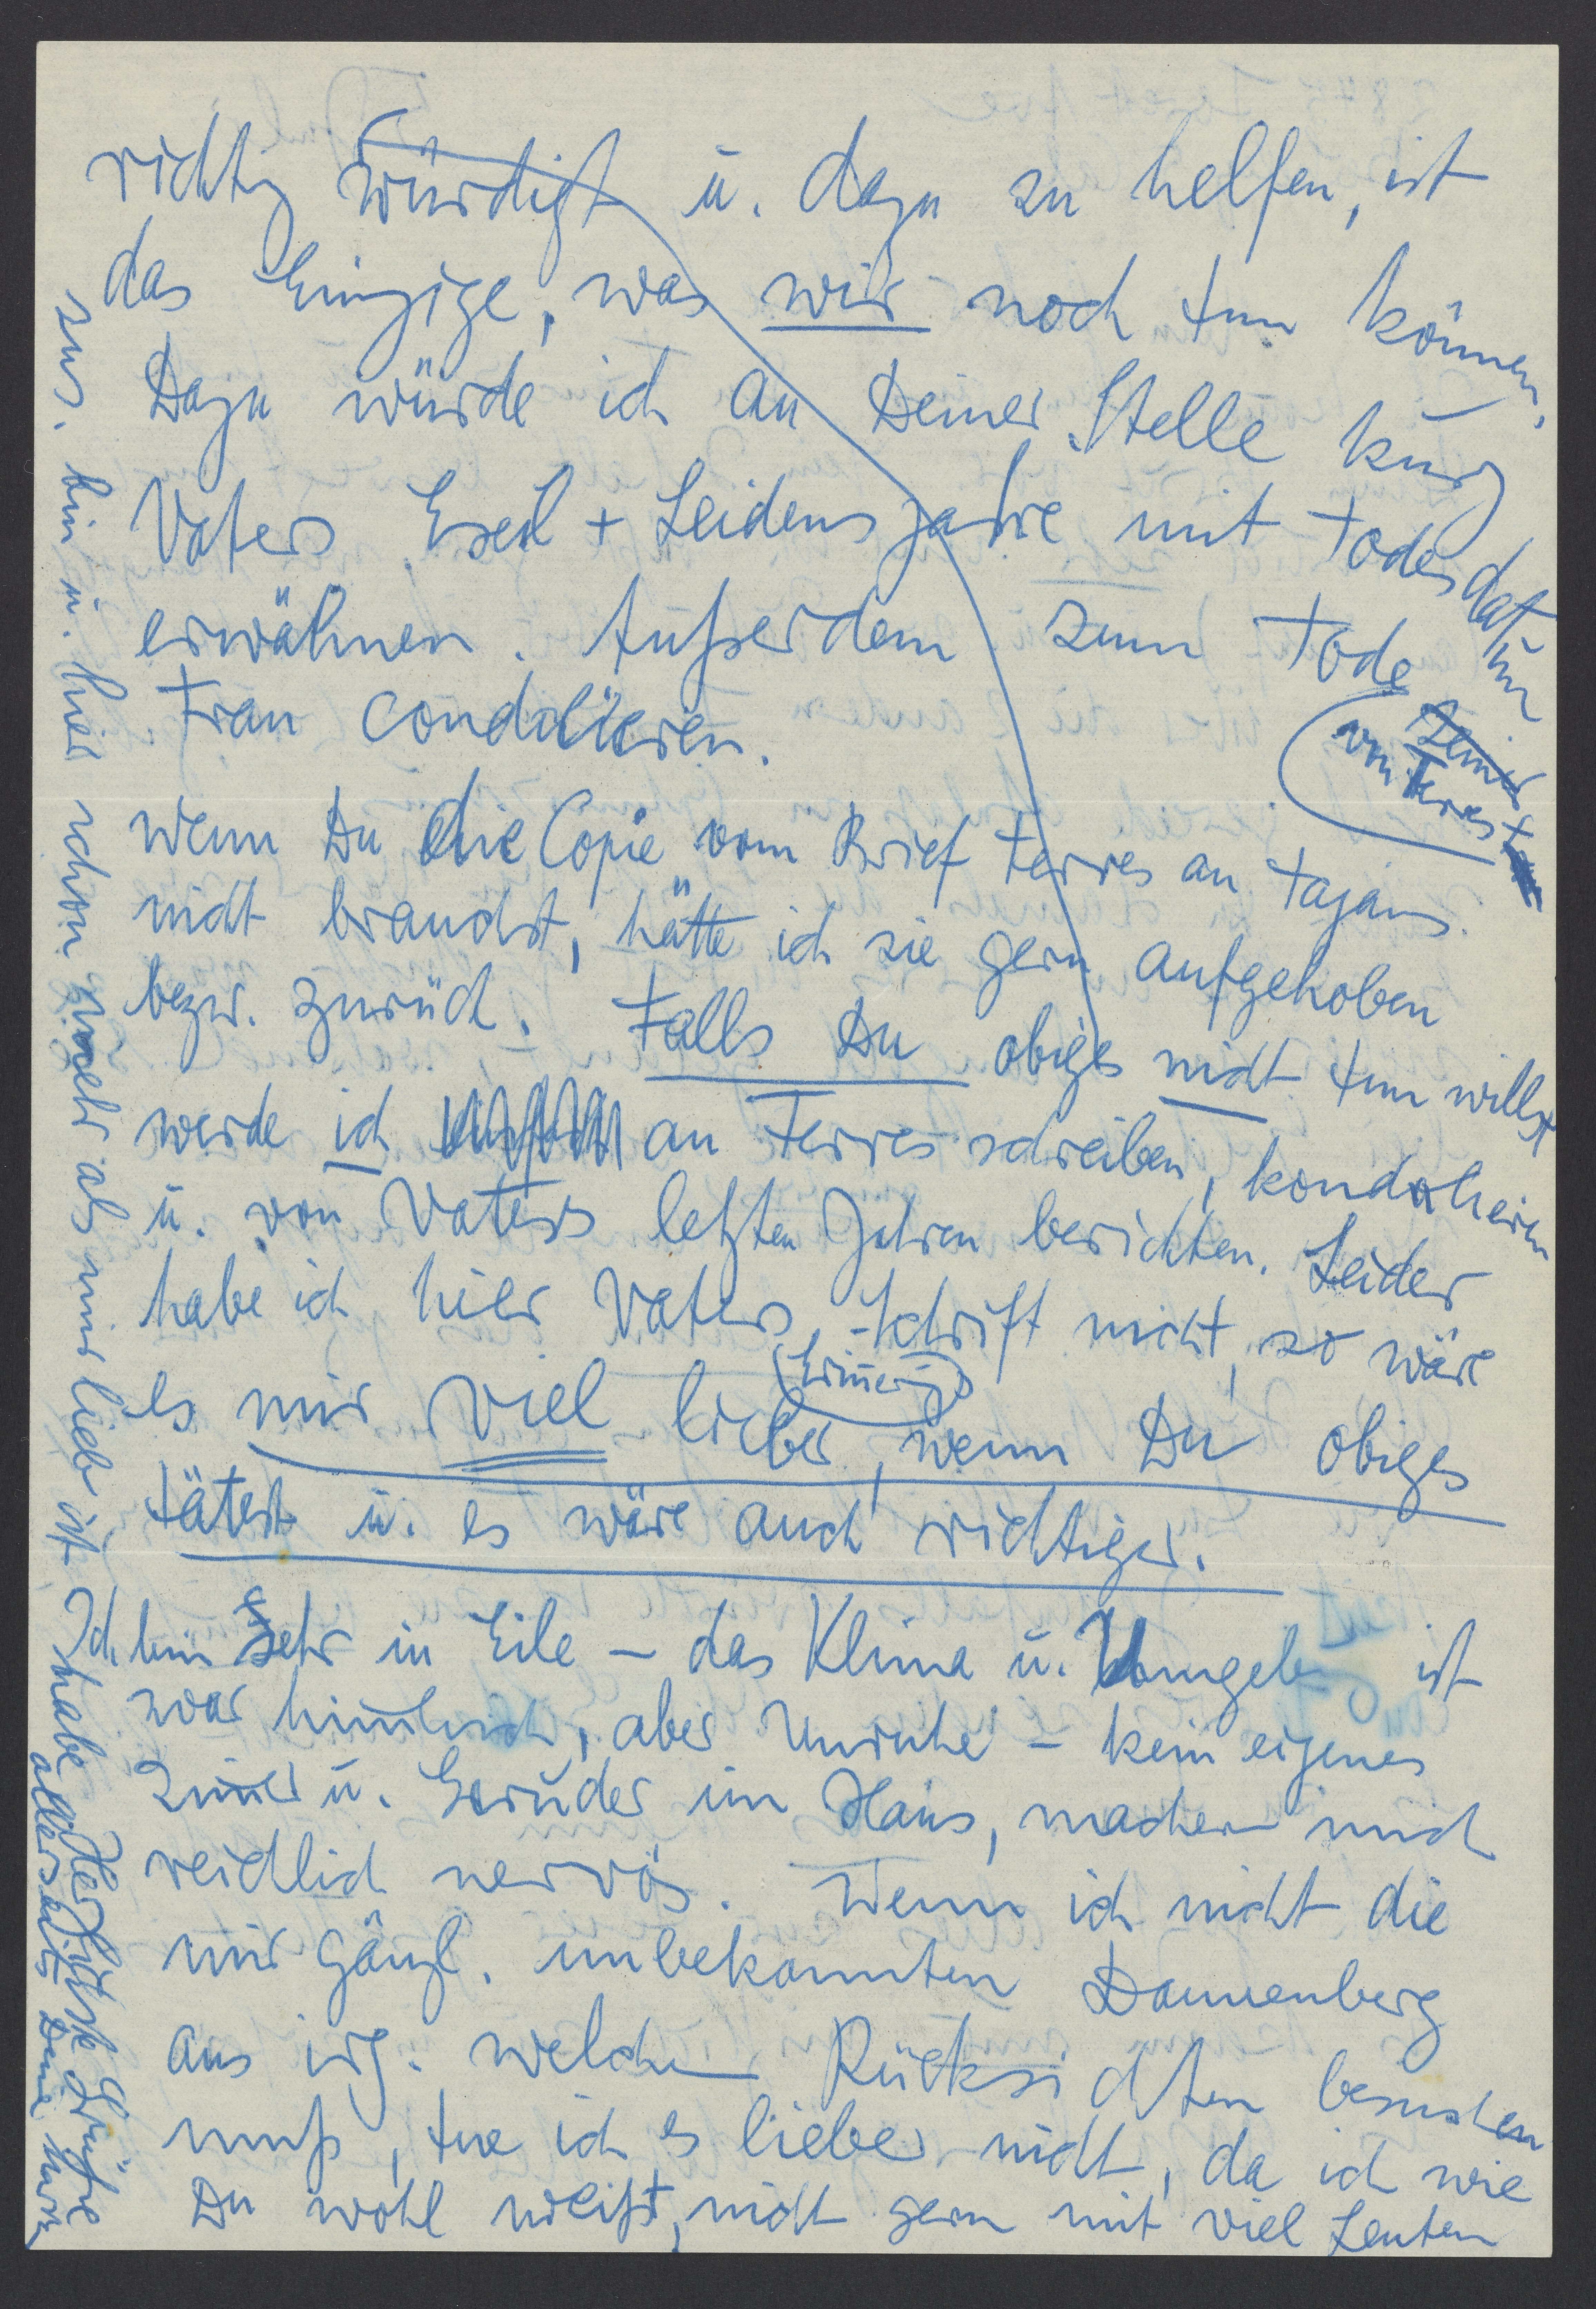 richtig würdigt u. dazu zu helfen, ist
das Einzige, was wir noch tun können.
Dazu würde ich an Deiner Stelle kurz
Vaters Exil + Leidensjahre mit Todesdatum
erwähnen. Außerdem zum Tode
von Terres
Frau condolieren.
Wenn Du die Copie vom Brief Terres an
nicht brauchst, hätte ich sie gern aufgehoben
bezw. zurück. Falls Du obiges nicht tun willst
werde ich an Terres schreiben, kondolieren
u. von Vaters letzten Jahren berichten. Leider
habe ich hier Vaters Schrift nicht, so wäre
es mir viel lieber, wenn Du obiges
tätest u. es wäre auch richtiger.
Ich bin sehr in Eile – das Klima u. Umgebung ist
zwar himmlisch, aber Unruhe – kein eigenes
Zimmer u. Geräusche im Haus, machen mich
reichlich nervös. Wenn ich nicht die
mir gänzl. unbekannten Dannenberg
aus irg. welchen Rücksichten besuchen
muß, tue ich es lieber nicht, da ich wie
Du wohl weißt, nicht gern mit viel Leuten
zus. bin u. hier schon mehr als mir lieb ist. Ich habe
Herzlichste Grüße
allerseits Deine